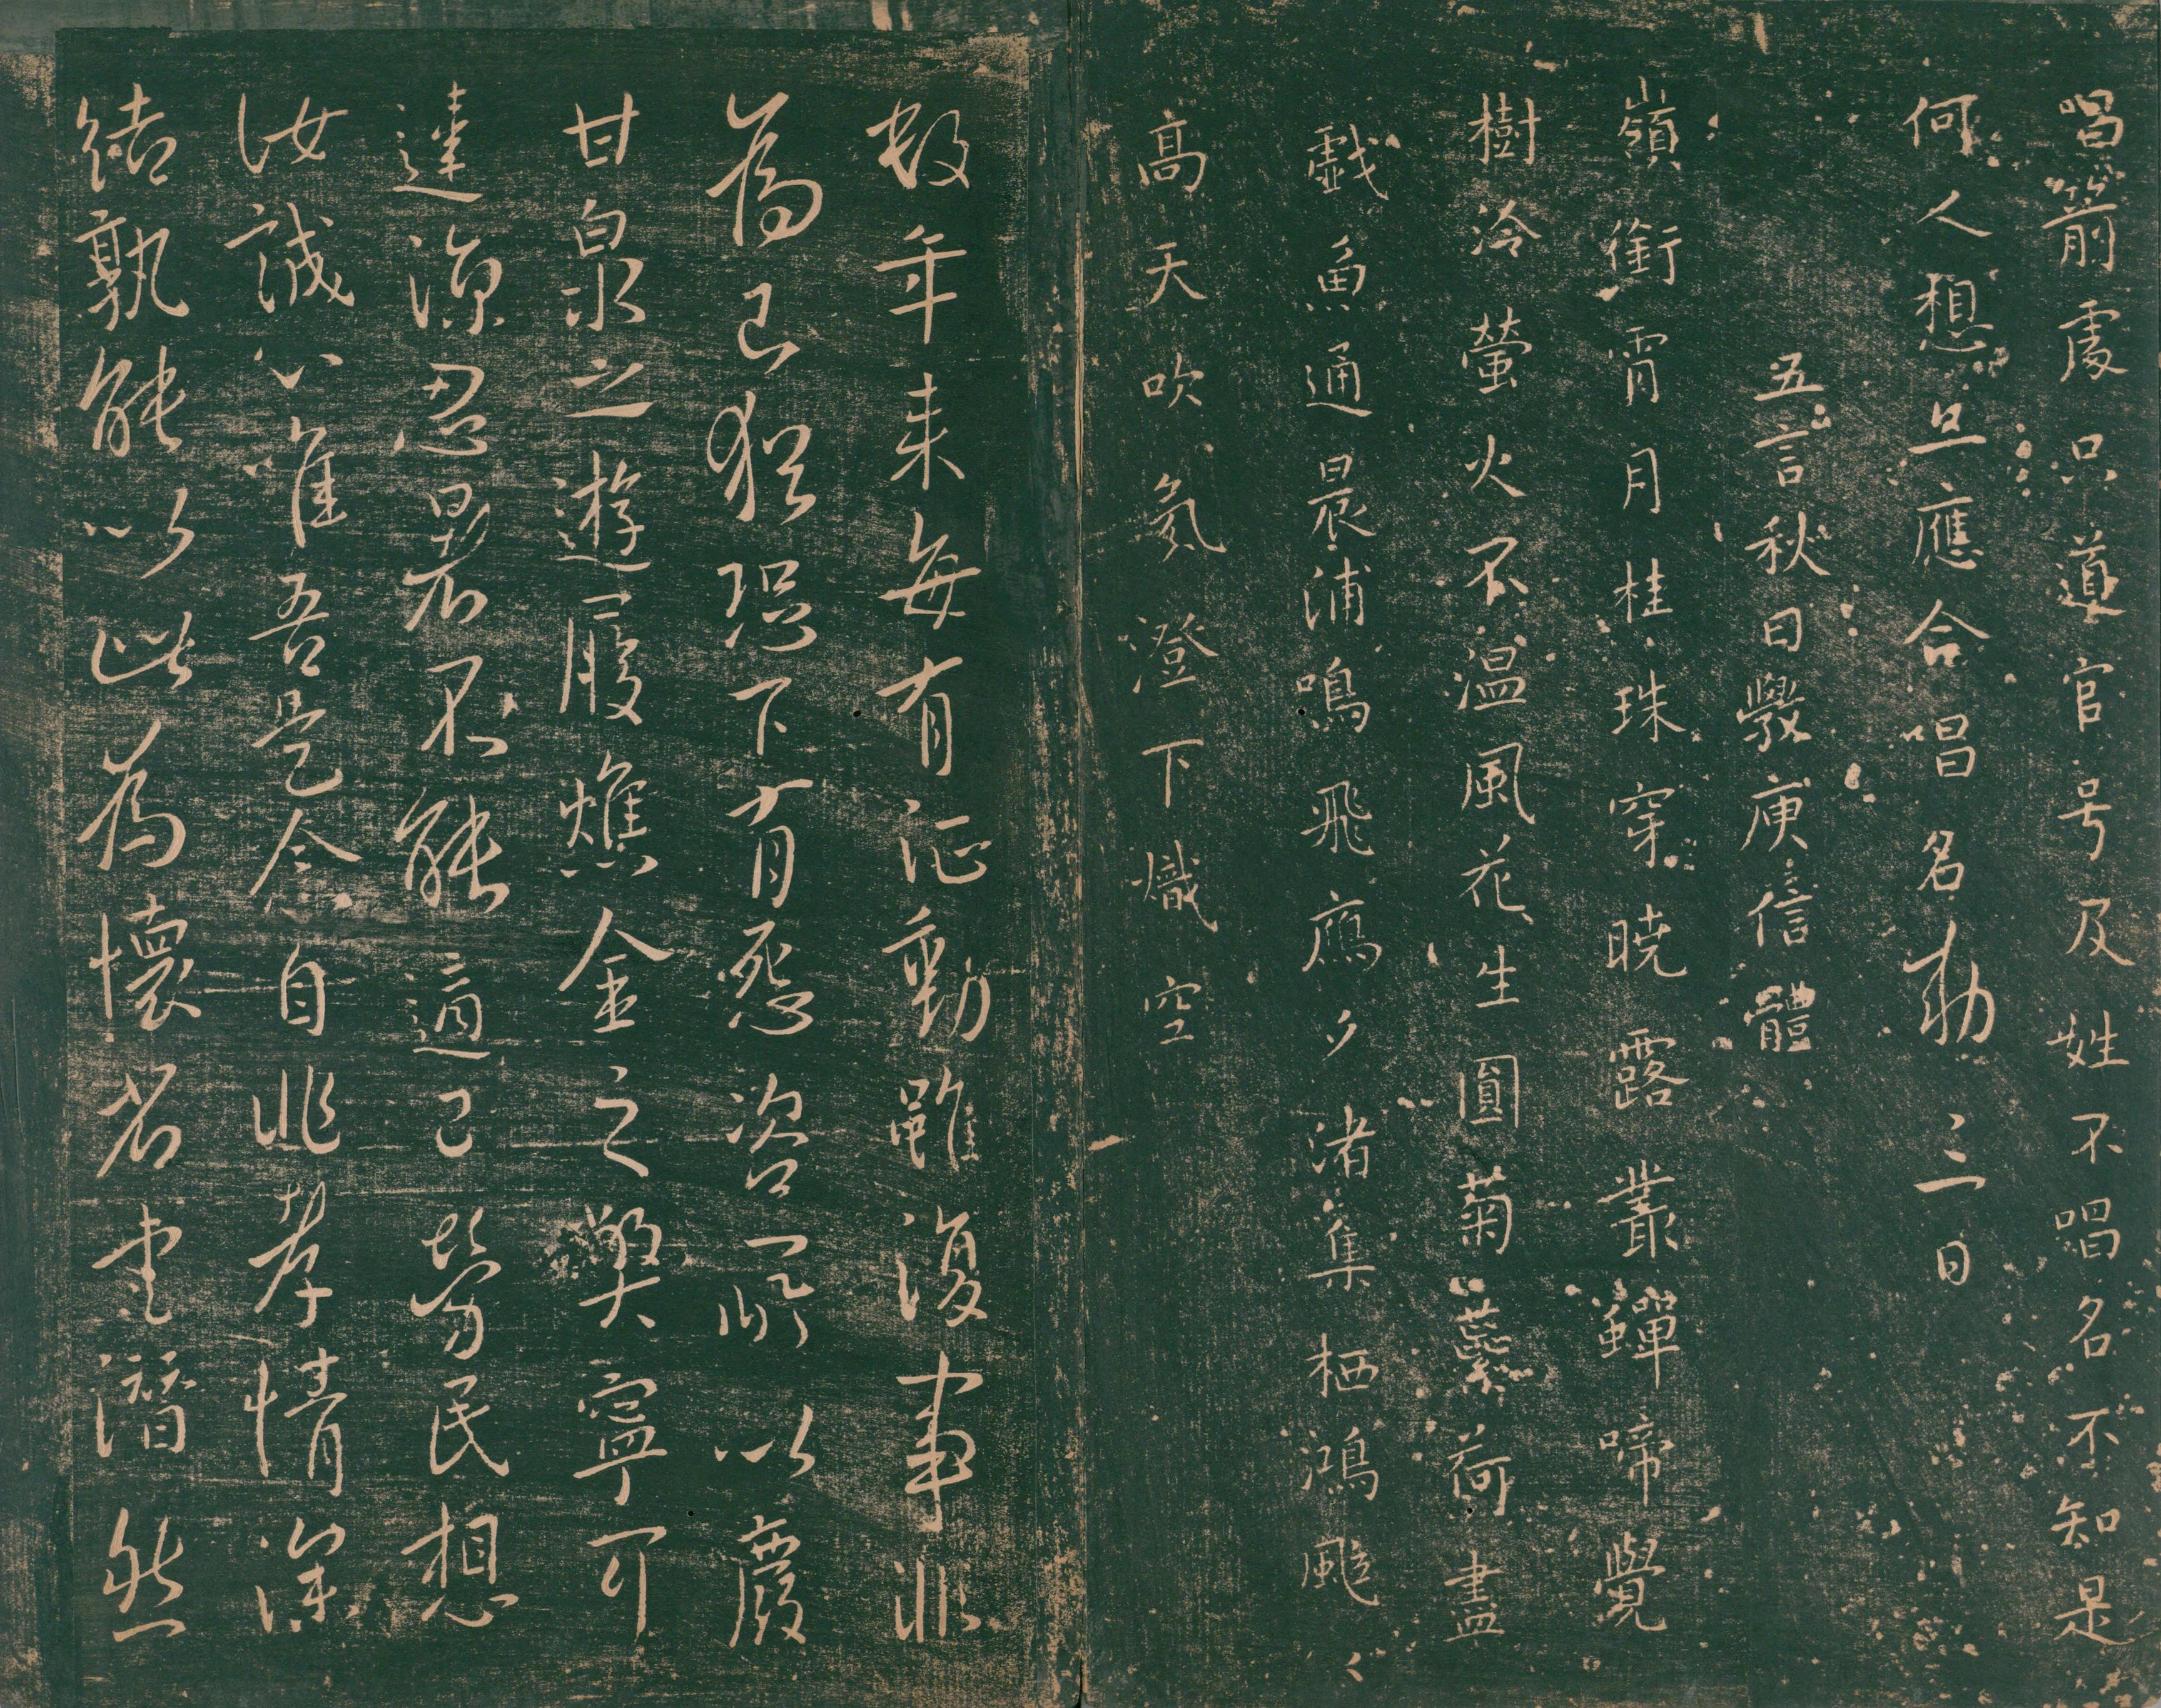 唱箭處只導官号及姓不唱名不知是
何人想旦應合唱名勅 三日
五言秋日斆庾信體
嶺銜霄月桂珠穿曉露叢蟬啼覺
樹冷螢火不温風花生圓菊蘂荷盡
戲魚通晨浦鳴飛鴈夕渚集栖鴻颸〻
高天吹氣澄下熾空
數年来每有征動雖復事非
為己猶恐下有怨咨所以廢
甘泉之遊履燋金之弊寧可
違涼忍暑不能適己勞民想
汝誠心唯吾是念自非孝情深
結孰能以此為懷者也潛然